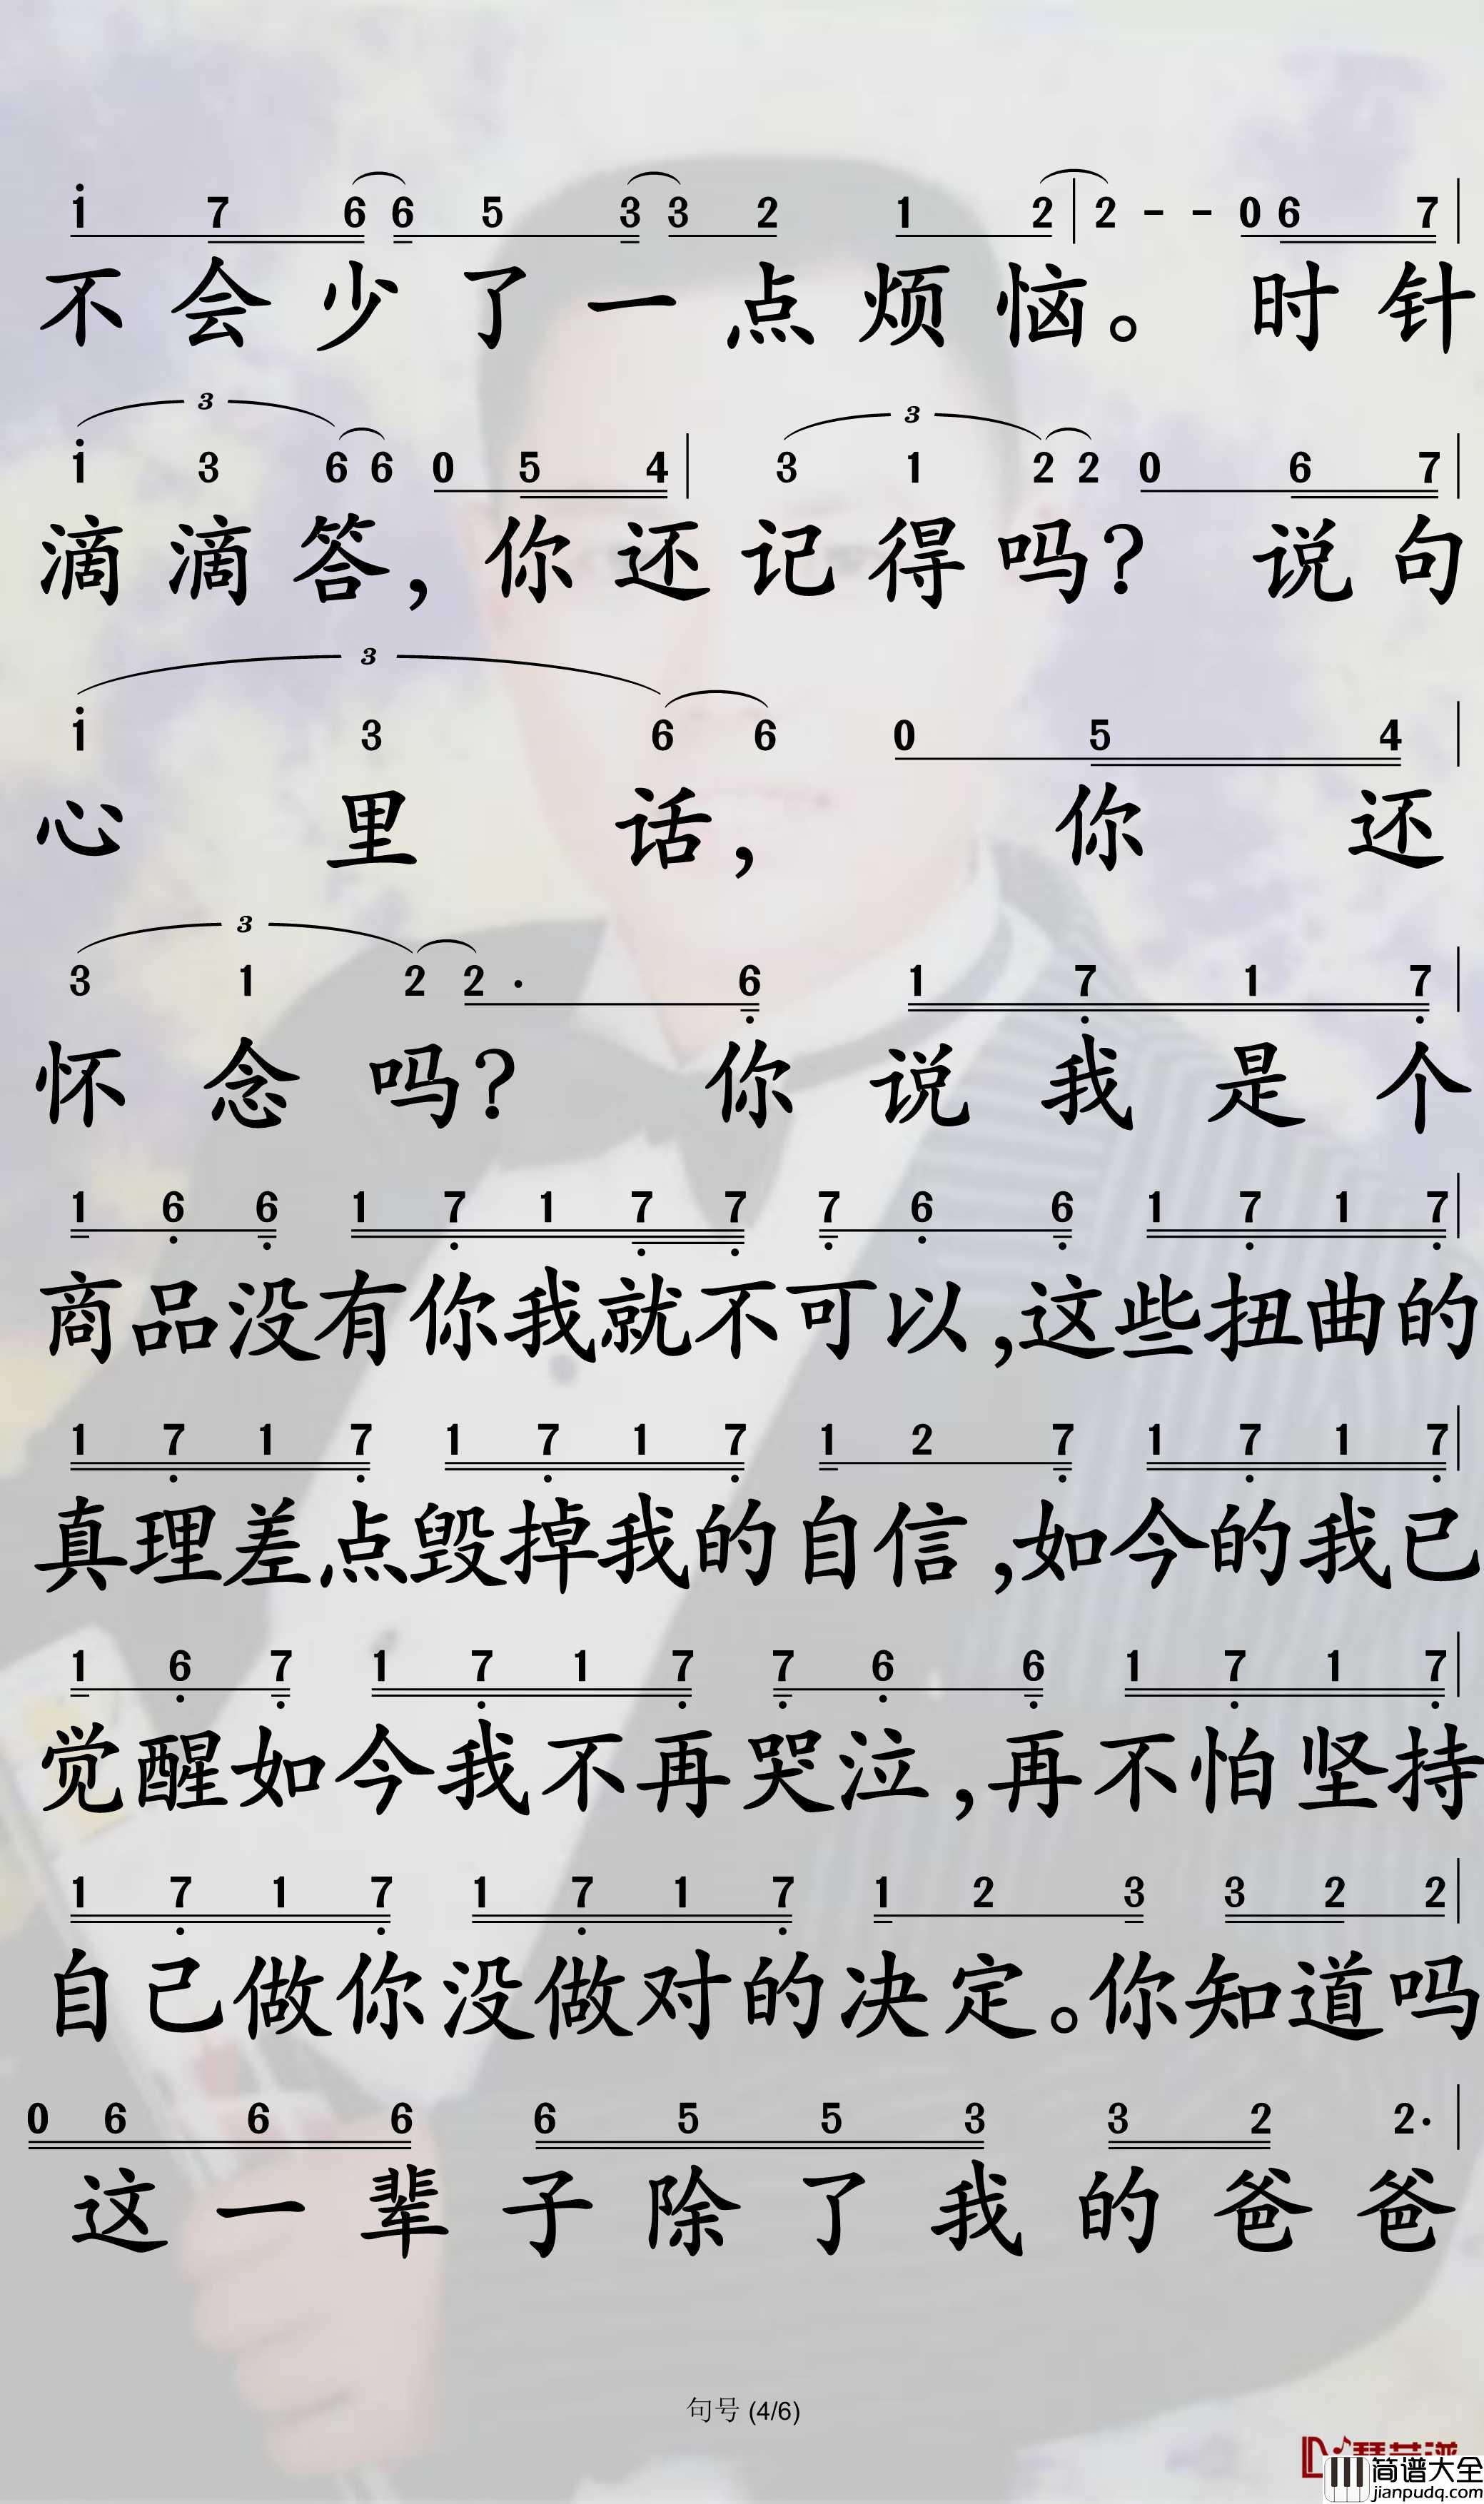 i 7 6 6 5 3 3 2 1 2 | 2 - - 0 6 7 |
不会少了一点烦恼。 时针
3 3
i 3 6 6 0 5 4 | 3 1 2 2 0 6 7 |
滴滴答，你还记得吗？ 说句
3
i 3 6 6 0 5 4 |
心里话， 你还
3
3 1 2 2 · 6 1 7 1 7 |
怀念吗？ 你说我是个
1 6 6 1 7 1 7 7 7 6 6 1 7 1 7 |
商品没有你我就不可以，这些扭曲的
1 7 1 7 1 7 1 7 1 2 7 1 7 1 7 |
真理差点毁掉我的自信，如今的我已
1 6 7 1 7 1 7 7 6 6 1 7 1 7 |
觉醒如今我不再哭泣，再不怕坚持
1 7 1 7 1 7 1 7 1 2 3 3 2 2 |
自己做你没做对的决定。你知道吗
0 6 6 6 6 5 5 3 3 2 2· |
这一辈子除了我的爸爸
句号 (4/6)
简谱大全
jianpudq.com